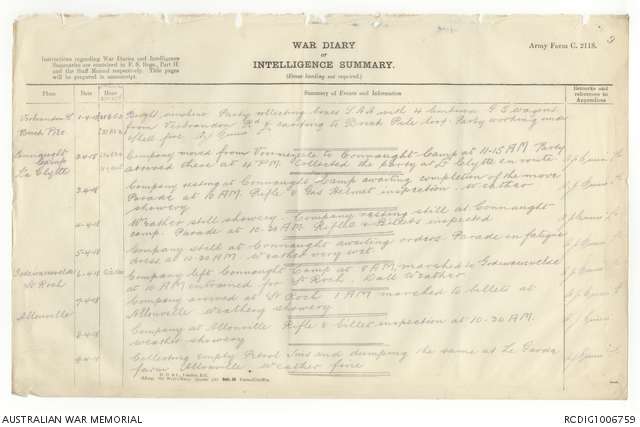 2
WAR DIARY
OR
INTELLIGENCE SUMMARY.
(Erase heading not required.)
Army Form C. 2118.
Instructions regarding War Diaries and Intelligence
Summaries are contained in F. S. Regs., Part II.
and the Staff Manual respectively. Title pages
will be prepared in manuscript.
Place
Date
Hour
Summary of Events and Information
Remarks and
references to
Appendices
1-4-18
Bright sunshine Party collecting boxes S.A.A with 4 limbered G.S wagons
from Rd & carting to Pale Party working under
shell fire
Connaught
Camp
La Clytte
2-4-18
Company moved from to Connaught Camp at 11-15 AM Party
arrived there at 4 PM. Collected the party at La Clytte en route
3-4-18
Company resting at Connaught Camp awaiting completion of the move
Parade at 10 AM. Rifle & Gas Helmet inspection. Weather
showery
4-4-18
Weather still showery. Company resting still at Connaught
camp. Parade at 10-30 AM Rifles & Billets inspected
5-4-18
Company still at Connaught awaiting orders Parade in fatigue
dress at 10-30 AM. Weather very wet.
Godewaersvelde
St Roch
6-4-18
Company left Connaught Camp at 8 AM, marched to Godewaersvelde
at 10 AM entrained for St Roch. Dull Weather
7-4-18
Company arrived at St Roch 1 AM marched to billets at
Allonville Weather showery
Allonville
8-4-18
Company at Allonville Rifle & billet inspection at 10-30 AM.
weather showery
9-4-18
Collecting empty Petrol Tins and dumping the same at Le Garde
farm Allonville. Weather fine
AUSTRALIAN WAR MEMORIAL
RCDIG1006759